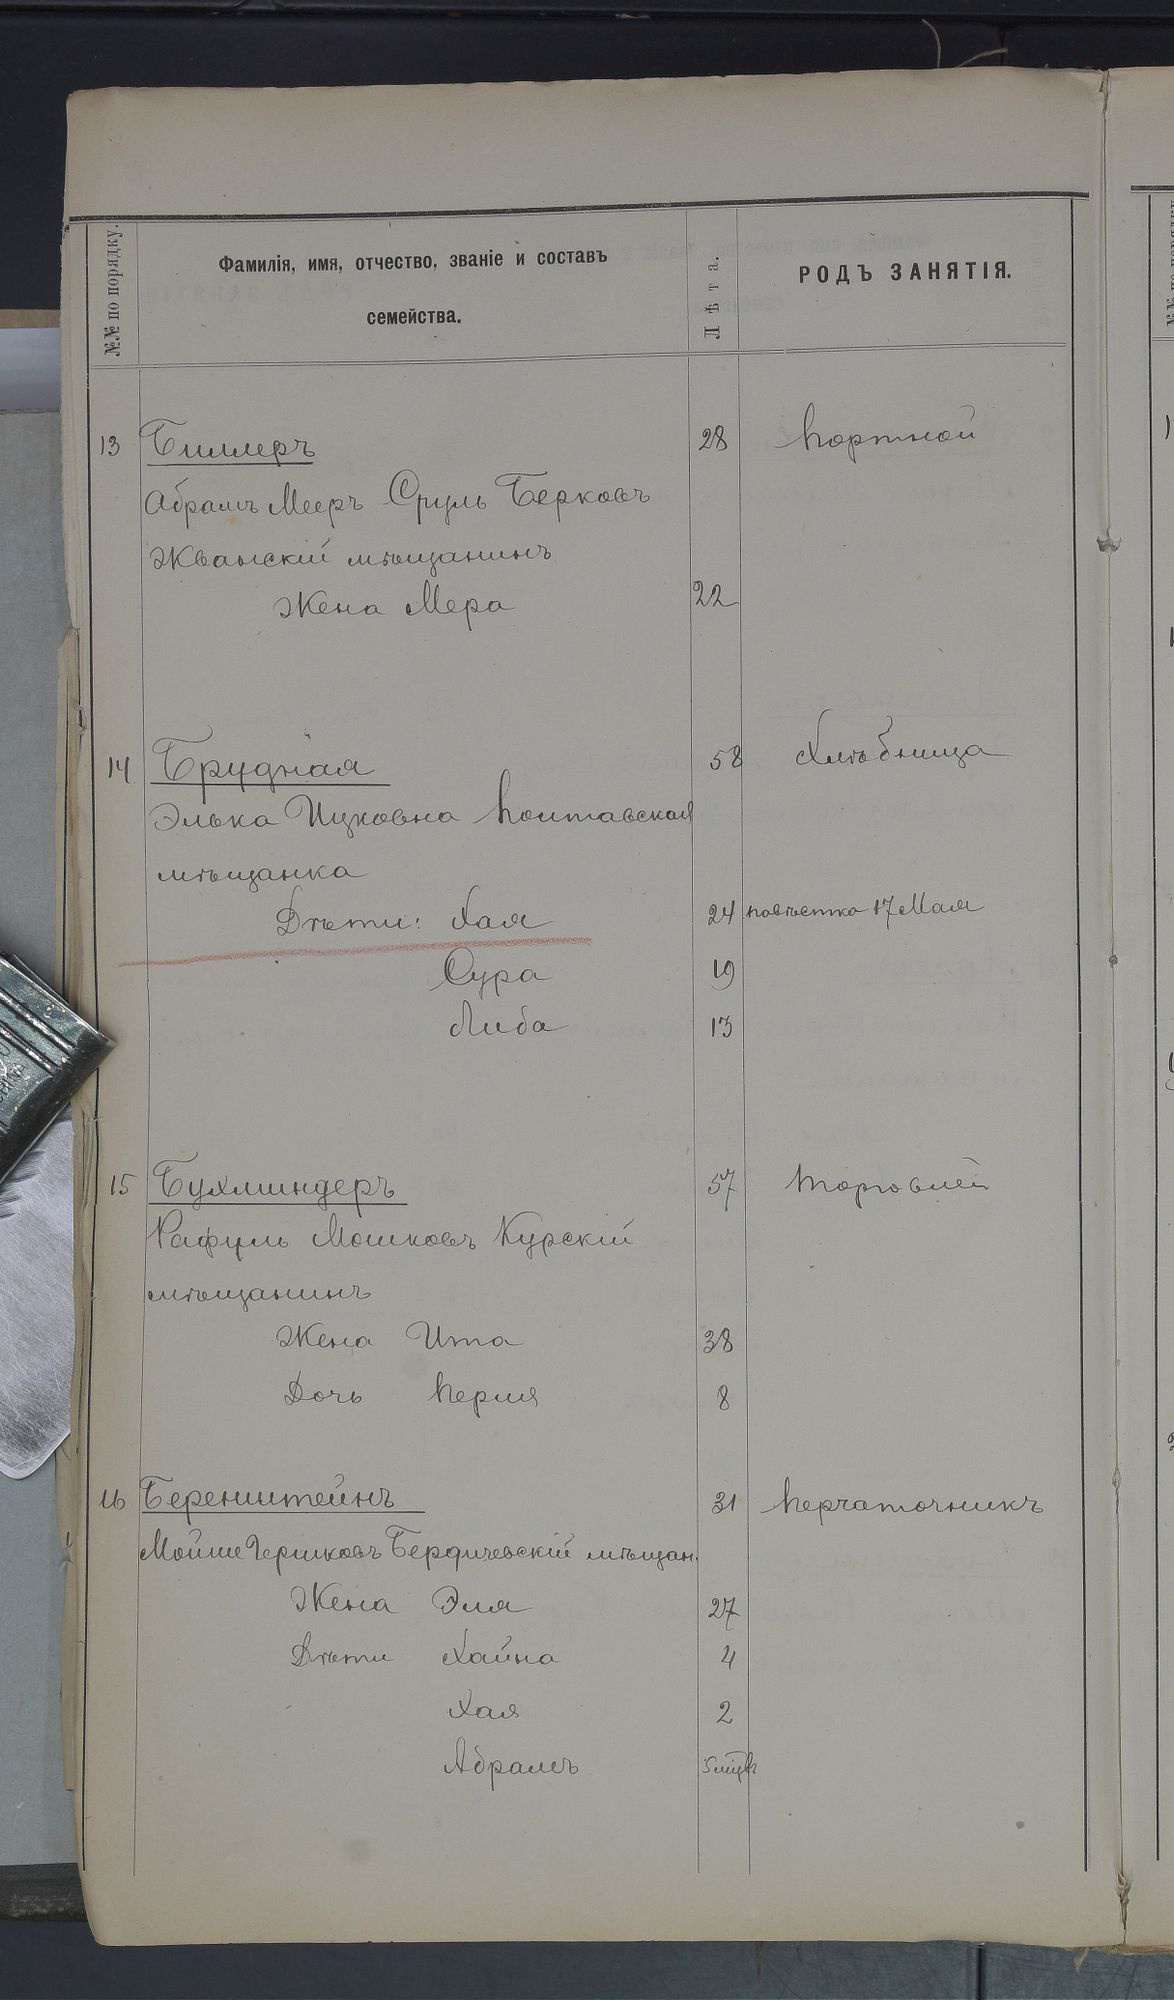 №№ по порядку.
Фамилія, имя, отчество, званіе и составъ
семейства.
Лѣта.
РОДЪ ЗАНЯТІЯ.
13 Биллеръ 28 Портной
Абрамъ Мееръ Сруль Берковъ
Жванскій мѣщанинъ
Жена Мера 22
14 Брудная 58 Хлѣбница
Элька Ицковна Полтавская
мѣщанка
Дѣти: Хая 24 повѣстка 17 Мая
Сура 19
Либа 13
15 Бухминдеръ 57 Торговлей
Рафуль Мошковъ Курскій
мѣщанинъ
Жена Ита 38
Дочь Перля 8
16 Беренштейнъ 31 Перчаточникъ
Мойше Гершковъ Бердичевскій мѣщан.
Жена Эля 27
Дѣти Хайна 4
Хая 2
Абрамъ